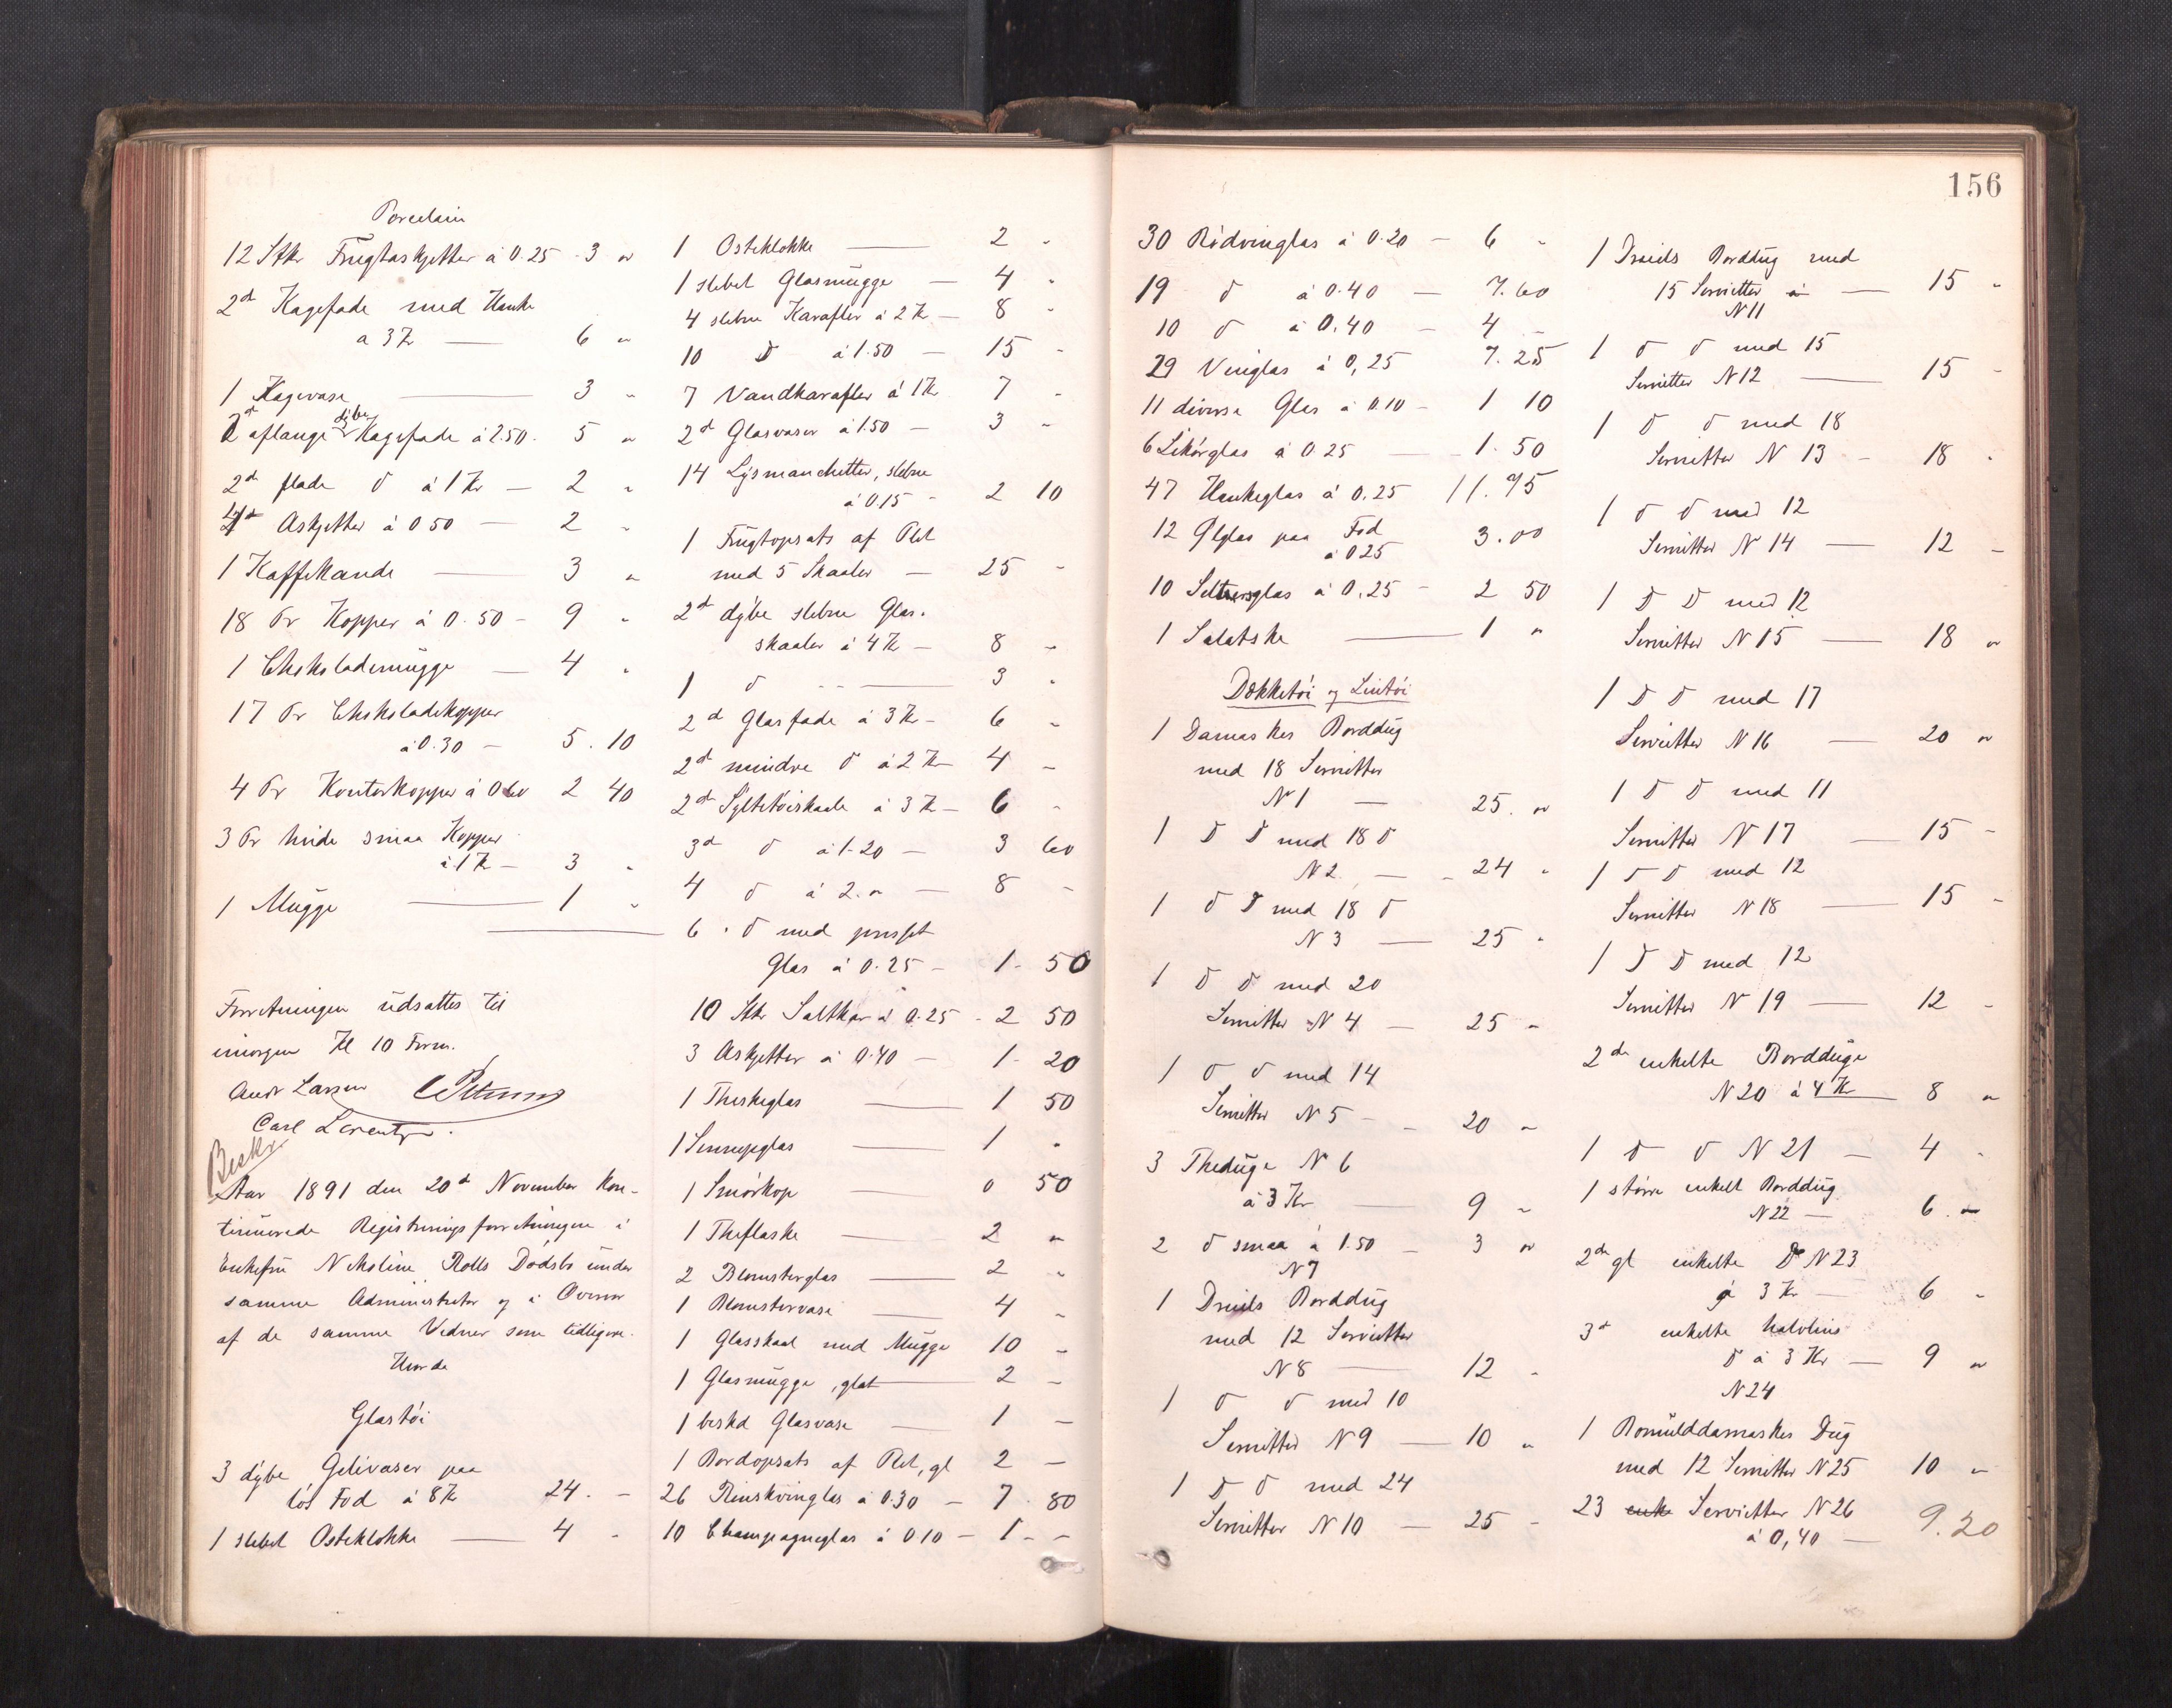 Porcelain
12 Stkr Frugtaskjetter à 0.25 . 3 "
2d Kagefade med Hanke
a 3 Kr — 6 "
1 Kagevase — 3 "
2d aflange dybe Kagefade à 2.50. 5 "
2d flade do à 1 Kr — 2 "
4d Askjetter à 0 50 — 2 "
1 Kaffekande — 3 "
18 Pr Kopper à 0.50 - 9 "
1 Chokolademugge — 4 "
17 Pr Chokoladekopper
à 0.30 — 5.10
4 Pr Kontorkopper à 0 60 2 40
3 Pr hvide smaa Kopper
à 1 Kr — 3 "
1 Mugge — 1 "
Forretningen udsattes til
imorgen Kl 10 Form.
Andr Larsen
Carl Lorentz.
Beskr
Aar 1891 den 20d November kon-
tinuerede Registreringsforretningen i
Enkefru Nikoline Rolls Dødsbo under
samme Administrator og i Overvær
af de samme Vidner som tidligere.
Havde
Glastöi
3 dybe Gelivaser paa
løs Fod à 8 Kr 24. —
1 slebet Osteklokke — 4 "
1 Osteklokke — 2 "
1 slebet Glasmugge — 4 "
4 slebne Karafler à 2 Kr — 8 "
10 do à 1.50 — 15 -
7 Vandkarafler à 1 Kr 7 -
2d Glasvaser à 1.50 — 3 "
14 Lysmanchetter, slebne
à 0.15 - 2 10
1 Frugtopsats af Plet
med 5 Skaaler — 25 -
2d dybe slebne Glas.
skaaler à 4 Kr — 8 "
1 do — 3 "
2d Glasfade à 3 Kr - 6 "
2d mindre do à 2 Kr 4 -
2d Syltetöiskaale à 3 Kr — 6 "
3d do à 1-20 — 3 60
4 do à 2." — 8 -
6 . do med presset
Glas à 0.25 - 1- 50
10 Stkr Saltkar à 0.25 - 2 50
3 Askjetter à 0.40 — 1- 20
1 Theskeglas — 1 50
1 Sennepglas — 1 "
1 Smörkop — 0 50
1 Theflaske — 2 "
2 Blomsterglas — 2 "
1 Blomstervase — 4 "
1 Glasskaal med Mugge 10 -
1 Glasmugge, glat — 2 -
1 beskd Glasvase — 1 —
1 Bordopsats af Plet, gl 2 —
26 Rinskvinglas à 0.30 — 7.80
10 Champagneglas à 0 10 — 1 - -
156
30 Rödvinglas à 0.20 — 6 "
19 do à 0.40 — 7.60
10 do à 0.40 — 4 -
29 Vinglas à 0,25 7.25
11 diverse Glas à 0.10 — 1 10
6 Likörglas à 0.25 — 1. 50
47 Hankeglas à 0.25 11.75
12 Ølglas paa Fod
à 0 25 3.00
10 Seltersglas à 0.25 - 2 50
1 Salatske — 1 "
Dækketöi og Lintöi
1 Damaskes Borddug
med 18 Servietter
N 1 — 25. "
1 do do med 18 do
N 2 — 24 "
1 do do med 18 do
N 3 — 25 "
1 do do med 20
Servietter N 4 — 25 "
1 do do med 14
Servietter N 5 - 20 "
3 Theduge N 6
à 3 Kr — 9 "
2 do smaa à 1.50 — 3 "
N 7
1 Dreiels Borddug
med 12 Servietter
N 8 — 12 "
1 do do med 10
Servietter N 9 — 10 "
1 do do med 24
Servietter N 10 — 25 -
1 Dreiels Borddug med
15 Servietter — 15 "
N 11
1 do do med 15
Servietter N 12 — 15 -
1 do do med 18
Servietter N 13 - 18 "
1 do do med 12
Servietter N 14 — 12 -
1 do do med 12
Servietter N 15 — 18 "
1 do do med 17
Servietter N 16 — 20 "
1 do do med 11
Servietter N 17 — 15 -
1 do do med 12
Servietter N 18 — 15 -
1 do do med 12
Servietter N 19 — 12 -
2de enkelte Bordduge
N 20 à 4 Kr 8 "
1 do do N 21 — 4 "
1 större enkelt Borddug
N 22 — 6. "
2de gl enkelte Do N 23
à 3 Kr — 6 "
3d enkelte halvlins
do à 3 Kr — 9 "
N 24
1 Bomulddamaskes Dug
med 12 Servietter N 25 10 "
23 enk Servietter N 26
à 0,40 — 9.20